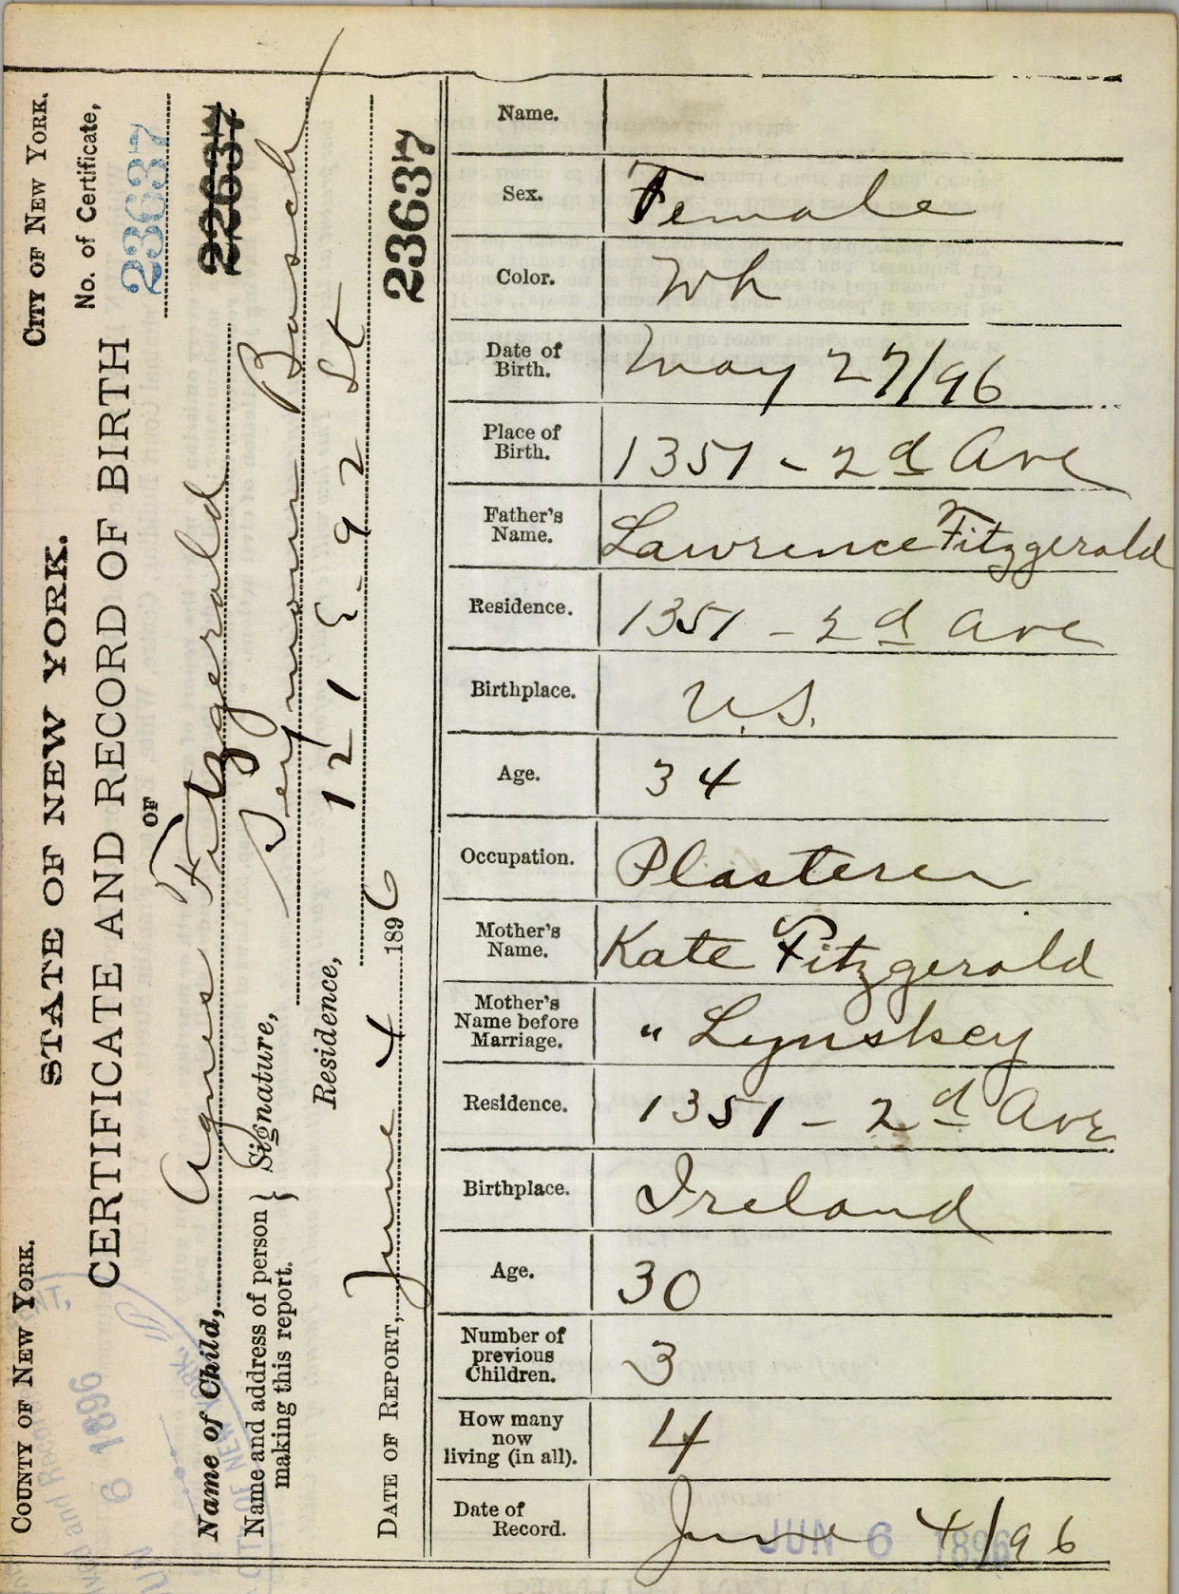 COUNTY OF NEW YORK. CITY OF NEW YORK.
STATE OF NEW YORK.
No. of Certificate,
CERTIFICATE AND RECORD OF BIRTH
23637
OF
Name of Child, Agnes Fitzgerald
22637
Name and address of person making this report. } Signature, Seymour Basch
Residence, 121 E. 92 St
DATE OF REPORT, June 4 1896
23637
Name.
Sex. Female
Color. Wh
Date of Birth. May 27/96
Place of Birth. 1351 - 2d Ave
Father's Name. Lawrence Fitzgerald
Residence. 1351 - 2d Ave
Birthplace. U.S.
Age. 34
Occupation. Plasterer
Mother's Name. Kate Fitzgerald
Mother's Name before Marriage. " Lynskey
Residence. 1351 - 2d Ave
Birthplace. Ireland
Age. 30
Number of previous Children. 3
How many now living (in all). 4
Date of Record. June 4/96
JUN 6 1896
6 1896
CITY OF NEW YORK.